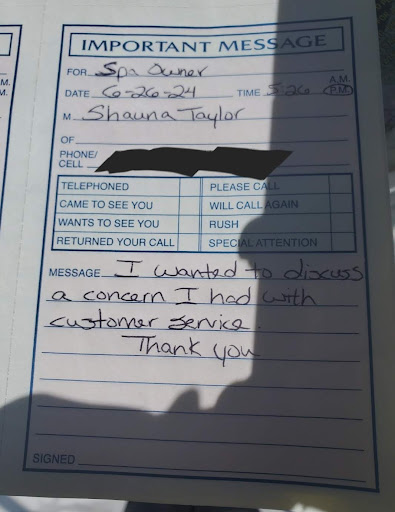 IMPORTANT MESSAGE
FOR Spa Owner
A.M.
DATE 6-26-24 TIME 5:26 P.M.
M Shauna Taylor
OF
PHONE/
CELL
TELEPHONED PLEASE CALL
CAME TO SEE YOU WILL CALL AGAIN
WANTS TO SEE YOU RUSH
RETURNED YOUR CALL SPECIAL ATTENTION
MESSAGE I wanted to discuss
a concern I had with
customer service.
Thank you
SIGNED